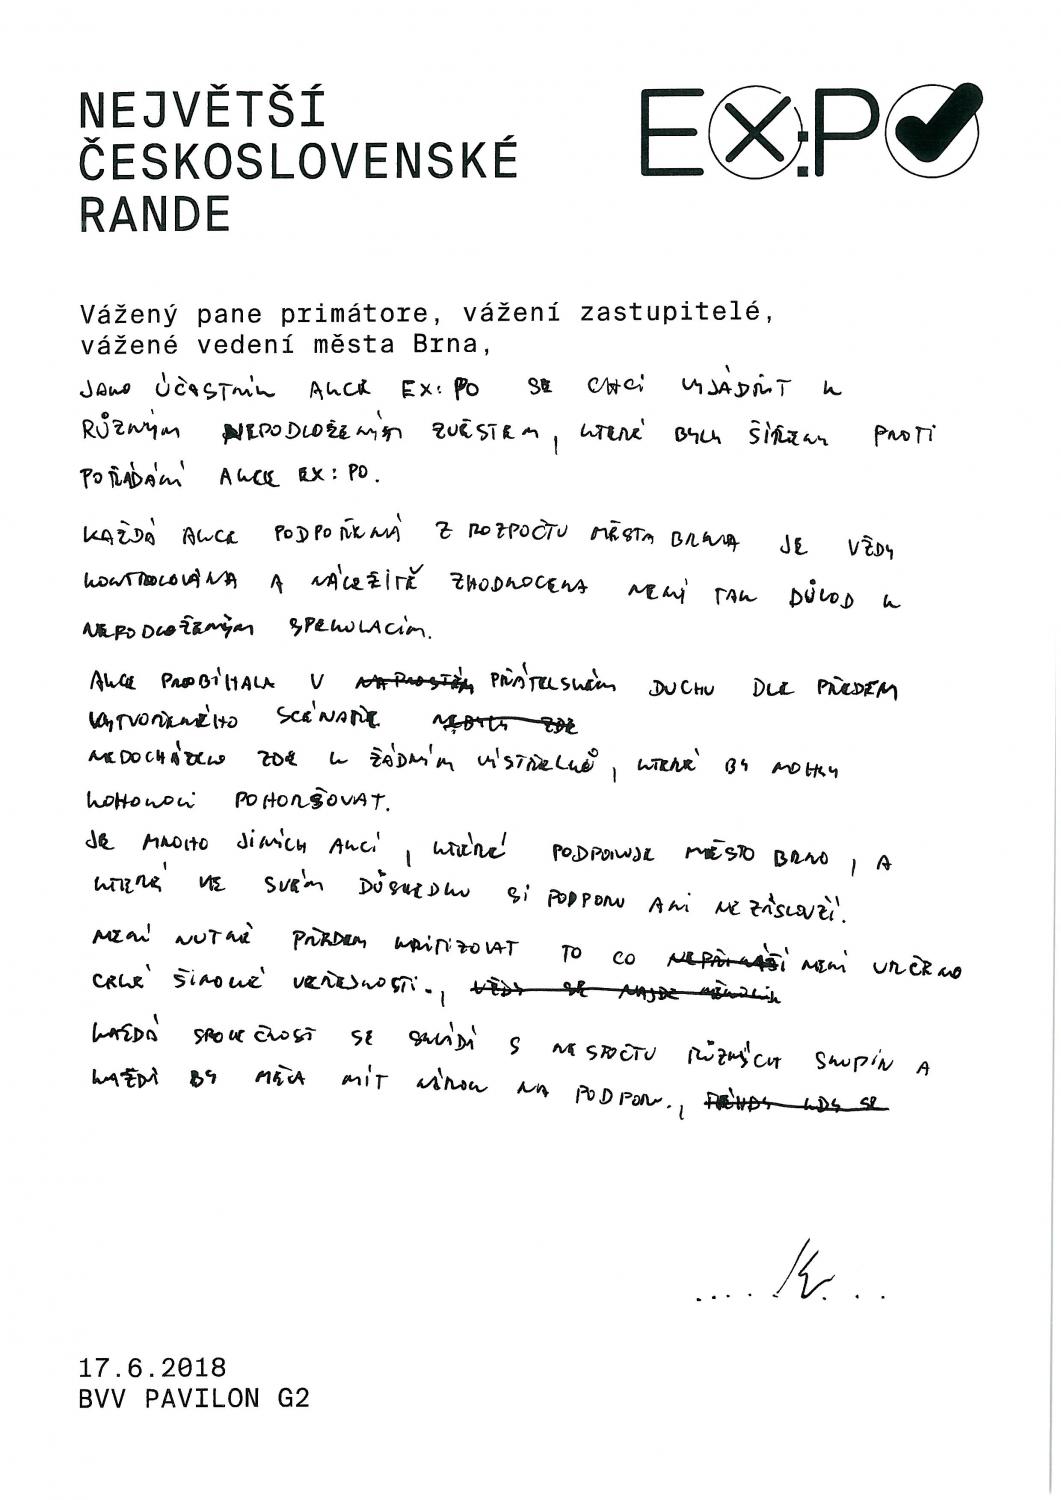 NEJVĚTŠÍ
ČESKOSLOVENSKÉ
RANDE
EX:PO
Vážený pane primátore, vážení zastupitelé,
vážené vedení města Brna,
JAKO ÚČASTNÍK AKCE EX:PO SE CHCI VYJÁDŘIT K
RŮZNÝM NEPODLOŽENÝM ZVĚSTEM, KTERÉ BYLY ŠÍŘENY PROTI
POŘÁDÁNÍ AKCE EX:PO.
KAŽDÁ AKCE PODPOŘENÁ Z ROZPOČTU MĚSTA BRNA JE VŽDY
KONTROLOVÁNA A NÁLEŽITĚ ZHODNOCENA NENÍ TAK DŮVOD K
NEPODLOŽENÝM SPEKULACÍM.
AKCE PROBÍHALA V NAPROSTÉM PŘÁTELSKÉM DUCHU DLE PŘEDEM
VYTVOŘENÉHO SCÉNÁŘE NEBYLY ZDE
NEDOCHÁZELO ZDE K ŽÁDNÝM VÍSTŘELKŮ, KTERÉ BY MOHLY
KOHOKOLI POHORŠOVAT.
JE MNOHO JINÍCH AKCÍ, KTERÉ PODPORUJE MĚSTO BRNO, A
KTERÉ VE SVÉM DŮSLEDKU SI PODPORU ANI NEZÁSLOUŽÍ.
NENÍ NUTNÉ PŘEDEM KRITIZOVAT TO CO NEPŘINÁŠÍ NENÍ URČENO
CELÉ ŠIROKÉ VEŘEJNOSTI., VŽDY SE NAJDE
KAŽDÁ SPOLEČNOST SE SKLÁDÁ S NESPOČTU RŮZNÝCH SKUPIN A
KAŽDÁ BY MĚLA MÍT NÁROK NA PODPORU., KDY SE
17.6.2018
BVV PAVILON G2